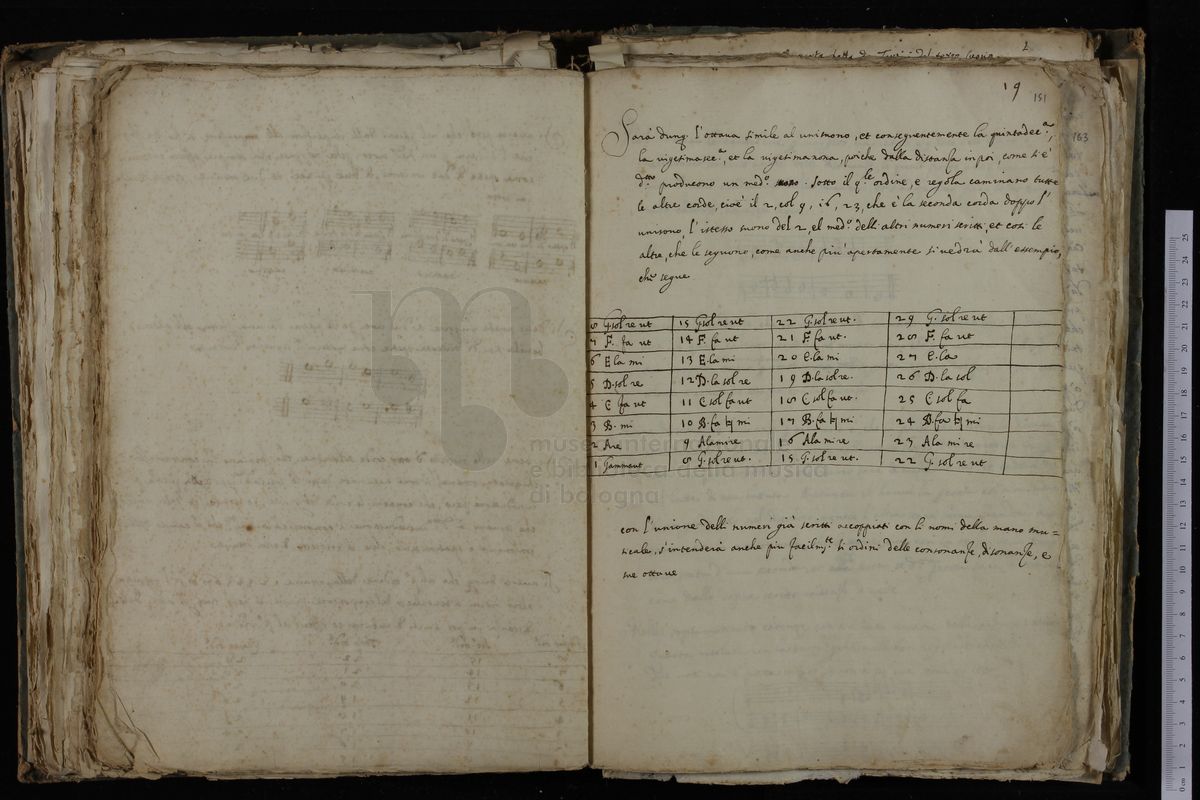 19
151
163
Sarà dunq. l'ottava simile al unisuono, et conseguentemente la quintadec.a,
la vigesimasec.a, et la vigesimanona, poiche dalla distanza in poi, come si è
d.tto producono un med.o suono. Sotto il q.le ordine, e regola caminano tutte
le altre corde, cioè il 2, col 9, 16, 23, che è la seconda corda doppo l'
unisono, l'istesso suono del 2, el med.o delli altri numeri scritti, et così le
altre, che le seguono, come anche più apertamente si vedrà dall'essempio,
che segue
8 G.sol re ut 15 G.sol re ut 22 G.sol re ut. 29 G.sol re ut
7 F. fa ut 14 F. fa ut 21 F. fa ut. 28 F. fa ut
6 E la mi 13 E.la mi 20 E.la mi 27 E.la
5 D.sol re 12 D.la sol re 19 D.la sol re. 26 D.la sol
4 C fa ut 11 C sol fa ut 18 C sol fa ut. 25 C sol fa
3 B. mi 10 B.fa ♮ mi 17 B.fa ♮ mi 24 B.fa ♮ mi
2 Are 9 Alamire 16 Ala mi re 23 Ala mi re
1 Gammaut 8 G.sol re ut. 15 G.sol re ut. 22 G.sol re ut
con l'unione delli numeri già scritti accoppiati con li nomi della mano mu=
sicale, s'intenderà anche più facilm.te li ordini delle consonanze, disonanze, e
sue ottave
museo internazionale
e biblioteca della musica
di bologna